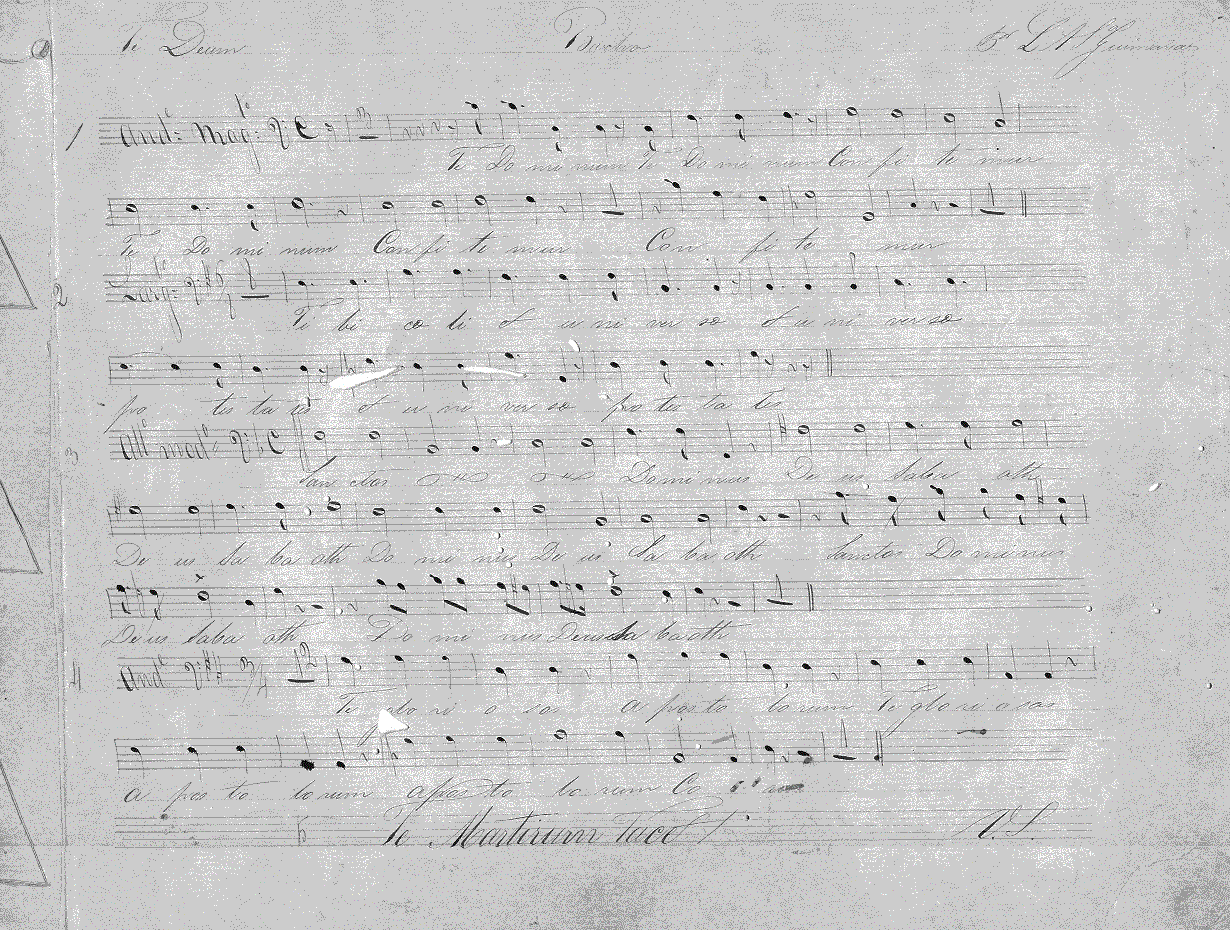 Te Deum Basso
1 And.e Mag.o C
Te Do mi num Te Do mi num Con fi te mur
Te Do mi num Con fi te mur Con fi te mur
2 Larg.o
Ti bi coe li et u ni ver so et u ni ver so
po tes ta tes et u ni ver so po tes ta tes
3 All.o mod.o C
San ctus Do mi nus De us Saba oth
De us Sa ba oth Do mi nus De us Sa ba oth Sanctus Do mi nus
De us Saba oth Do mi nus Deus Sa ba oth
4 And.e 3/4 12
Te glo ri o sus a pos to lo rum Te glo ri o sus
a pos to lo rum a pos to lo rum Co
5 Te Martirum Tacet V.S.